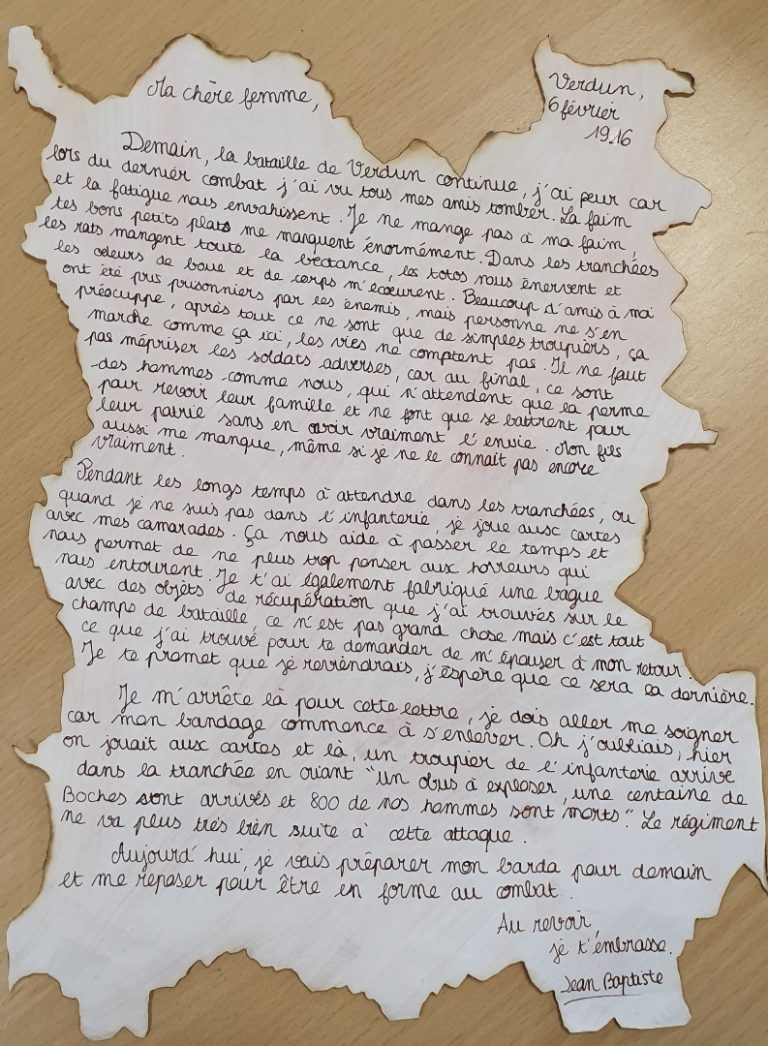 Ma chère femme,
Verdun,
6 février
1916
Demain, la bataille de Verdun continue, j'ai peur car
lors du derniér combat j'ai vu tous mes amis tomber. La faim
et la fatigue nous envahissent. Je ne mange pas à ma faim,
tes bons petits plats me manquent énormément. Dans les tranchées
les rats mangent toute la bectance, les totos nous énervent et
les odeurs de boue et de corps m'écoeurent. Beaucoup d'amis à moi
ont été pris prisonniers par les énemis, mais personne ne s'en
préocuppe, après tout ce ne sont que de simples troupiers, ça
marche comme ça ici, les vies ne comptent pas. Il ne faut
pas mépriser les soldats adverses, car au final, ce sont
des hommes comme nous, qui n'attendent que la perme
pour revoir leur famille et ne font que se battrent pour
leur patrie sans en avoir vraiment l'envie. Mon fils
aussi me manque, même si je ne le connait pas encore
vraiment.
Pendant les longs temps à attendre dans les tranchées, ou
quand je ne suis pas dans l'infanterie, je joue aux cartes
avec mes camarades. Ça nous aide à passer le temps et
nous permet de ne plus trop penser aux horreurs qui
nous entourent. Je t'ai également fabriqué une bague
avec des objets de récupération que j'ai trouvés sur le
champs de bataille, ce n'est pas grand chose mais c'est tout
ce que j'ai trouvé pour te demander de m'épouser à mon retour.
Je te promet que je revièndrais, j'éspère que ce sera la dernière.
Je m'arrête là pour cette lettre, je dois aller me soigner
car mon bandage commence à s'enlever. Oh j'oubliais, hier
on jouait aux cartes et là, un troupier de l'infanterie arrive
dans la tranchée en criant "un obus à exploser, une centaine de
Boches sont arrivés et 800 de nos hommes sont morts". Le régiment
ne va plus trés bien suite à cette attaque.
Aujourd'hui, je vais préparer mon barda pour demain
et me reposer pour être en forme au combat.
Au revoir,
je t'émbrasse.
Jean Baptiste